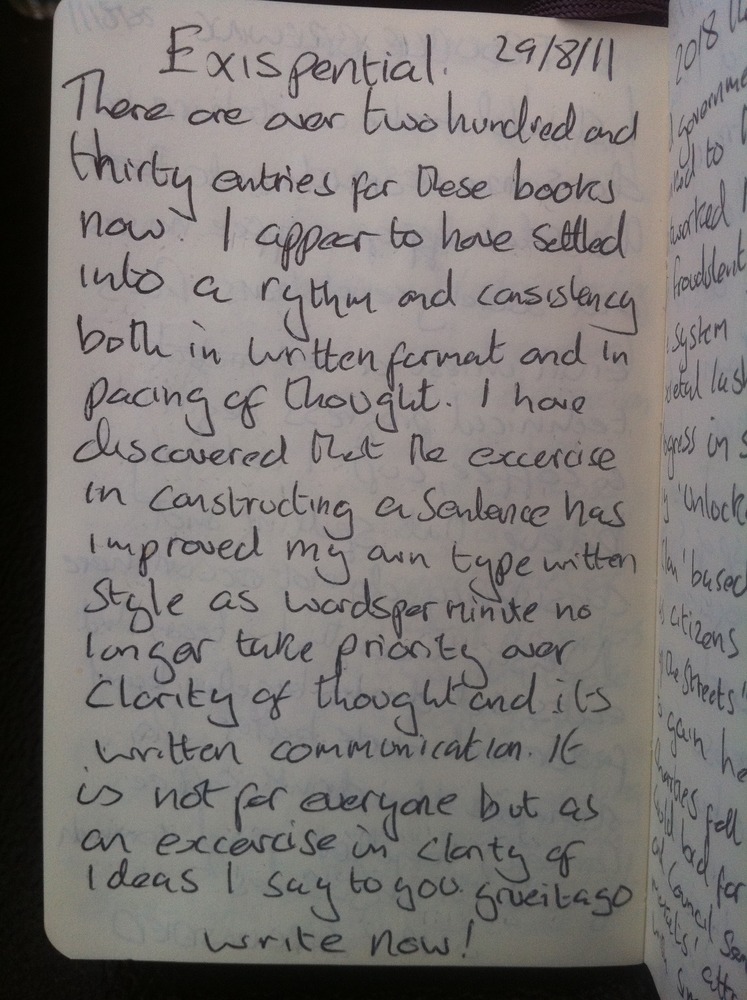 Exispential. 29/8/11
There are over two hundred and
thirty entries for these books
now. I appear to have settled
into a rythm and consistency
both in written format and in
pacing of thought. I have
discovered that the excercise
in constructing a sentence has
improved my own type written
style as words per minute no
longer take priority over
clarity of thought and its
written communication. It
is not for everyone but as
an excercise in clarity of
ideas I say to you give it a go
write now!
2018
governme
to
worked
fraudulent
system
etal lash
gress in s
'unlock
based
citizens
the streets'
gain he
Charities fell
bad for
Council